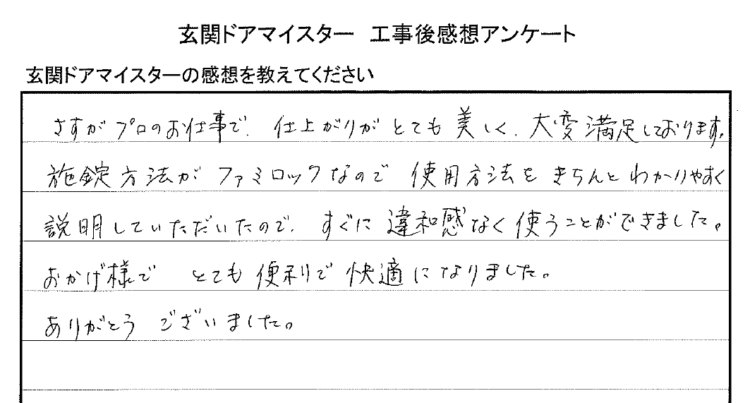 玄関ドアマイスター 工事後感想アンケート
玄関ドアマイスターの感想を教えてください
さすがプロのお仕事で、仕上がりがとても美しく、大変満足しております。
施錠方法がファミロックなので使用方法をきちんとわかりやすく
説明していただいたので、すぐに違和感なく使うことができました。
おかげ様で とても便利で快適になりました。
ありがとう ございました。